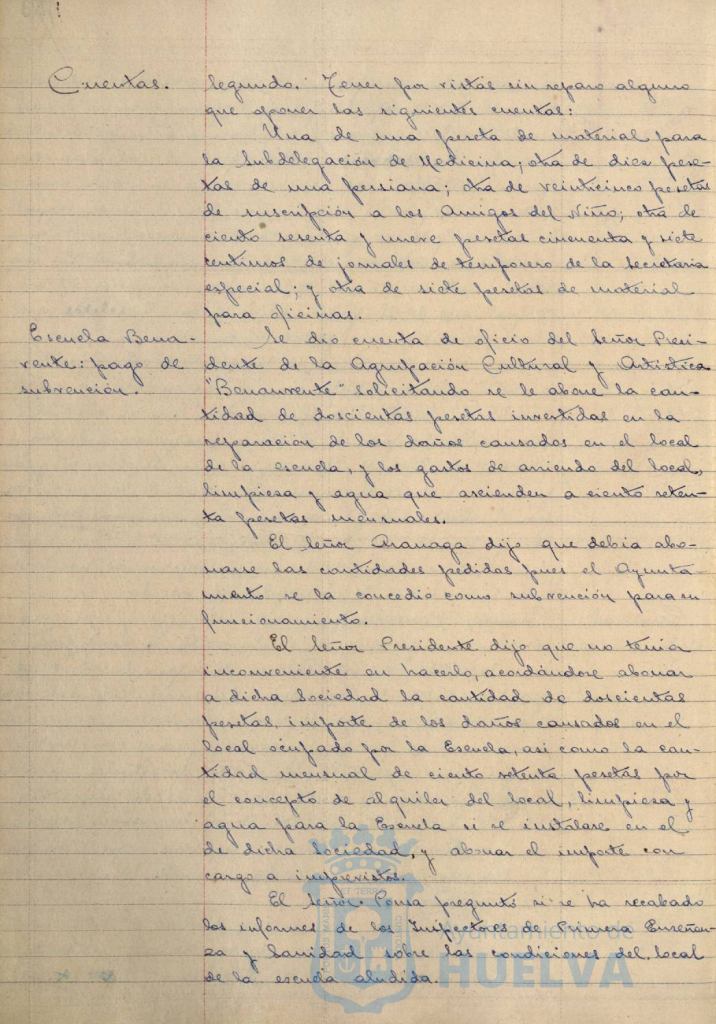 Cuentas.
Segundo. Tener por vistas sin reparo alguno
que oponer las siguientes cuentas:
Una de una peseta de material para
la Subdelegación de Medicina; otra de diez pese-
tas de una persiana; otra de veinticinco pesetas
de suscripción a los Amigos del Niño; otra de
ciento sesenta y nueve pesetas cincuenta y siete
centimos de jornales de temporero de la Secretaria
especial; y otra de siete pesetas de material
para oficinas.
Escuela Bena-
vente: pago de
subvención.
Se dio cuenta de oficio del Señor Presi-
dente de la Agrupación Cultural y Artistica
"Benavente" solicitando se le abone la can-
tidad de doscientas pesetas invertidas en la
reparación de los daños causados en el local
de la escuela, y los gastos de arriendo del local,
limpieza y agua que ascienden a ciento seten-
ta pesetas mensuales.
El Señor Aranaga dijo que debia abo-
narse las cantidades pedidas pues el Ayunta-
mento se la concedió como subvención para su
funcionamiento.
El Señor Presidente dijo que no tenia
inconveniente en hacerlo, acordándose abonar
a dicha Sociedad la cantidad de doscientas
pesetas, importe de los daños causados en el
local ocupado por la Escuela, asi como la can-
tidad mensual de ciento setenta pesetas por
el concepto de alquiler del local, limpieza y
agua para la Escuela si se instalare en el
de dicha Sociedad, y abonar el importe con
cargo a imprevistos.
El Señor Ponsa preguntó si se ha recabado
los informes de los Inspectores de Primera Enseñan-
za y Sanidad sobre las condiciones del local
de la escuela aludida.
Ayuntamiento de
HUELVA